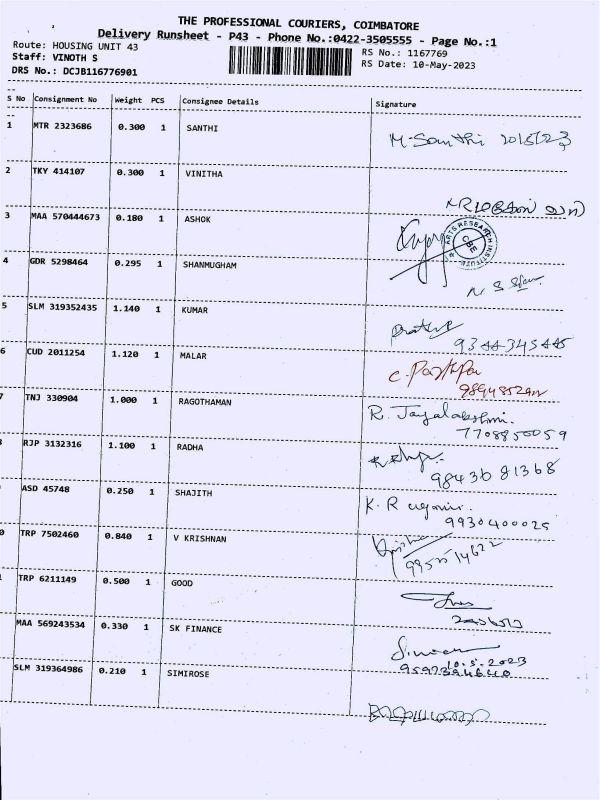 THE PROFESSIONAL COURIERS, COIMBATORE
Delivery Runsheet - P43 - Phone No.:0422-3505555 - Page No.:1
Route: HOUSING UNIT 43
RS No.: 1167769
Staff: VINOTH S
RS Date: 10-May-2023
DRS No.: DCJB116776901
S No Consignment No Weight PCS Consignee Details Signature
1 MTR 2323686 0.300 1 SANTHI
M. Santhi
2 TKY 414107 0.300 1 VINITHA
3 MAA 570444673 0.180 1 ASHOK
ARTS RESEARCH INSTITUTE
CBE
4 GDR 5298464 0.295 1 SHANMUGHAM
5 SLM 319352435 1.140 1 KUMAR
9344345445
6 CUD 2011254 1.120 1 MALAR
7 TNJ 330904 1.000 1 RAGOTHAMAN
R. Jayalakshmi.
7708850059
RJP 3132316 1.100 1 RADHA
98430 81368
ASD 45748 0.250 1 SHAJITH
K. R
9930400025
0 TRP 7502460 0.840 1 V KRISHNAN
TRP 6211149 0.500 1 GOOD
MAA 569243534 0.330 1 SK FINANCE
10.5.2023
SLM 319364986 0.210 1 SIMIROSE